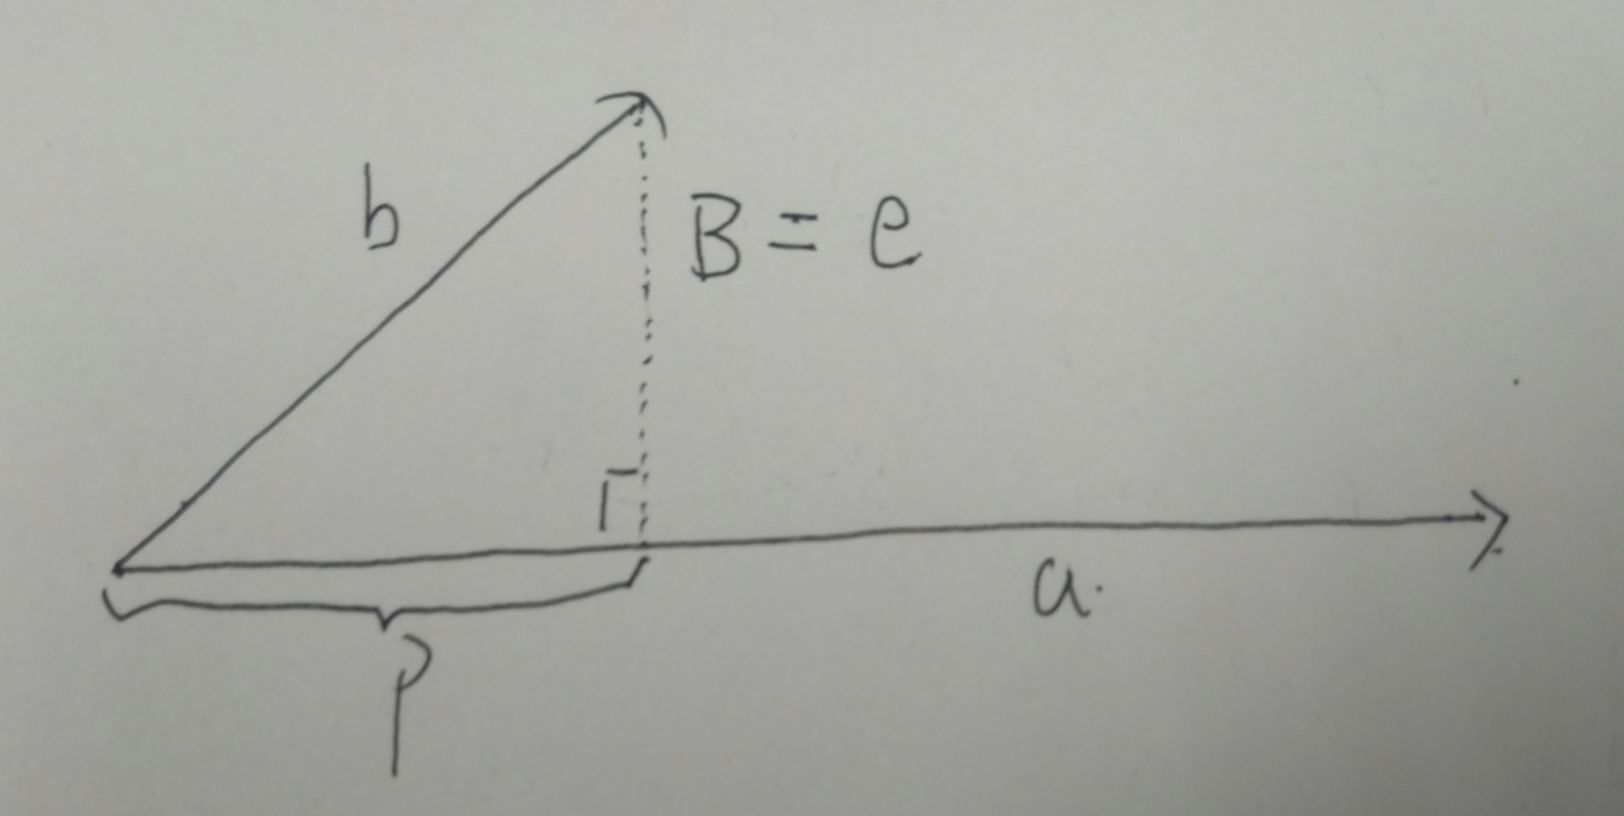 b
B = e
a.
p